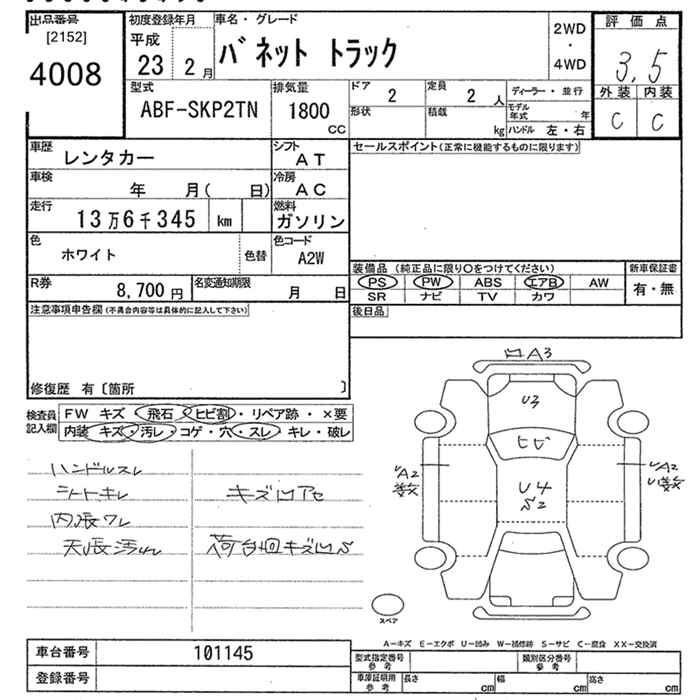 出品番号
[2152]
4008
初度登録年月
平成
23 2月
車名・グレード
バネット トラック
2WD
・
4WD
評価点
3,5
外装 内装
C C
型式
ABF-SKP2TN
排気量
1800
CC
ドア 2
定員 2 人
ディーラー・並行
形状
積載 kg
モデル年式 年
ハンドル 左・右
車歴 レンタカー
シフト AT
セールスポイント(正常に機能するものに限ります)
車検 年 月( 日)
冷房 AC
走行 13万6千345 km
燃料 ガソリン
色 ホワイト
色替
色コード A2W
装備品 (純正品に限り○をつけてください)
新車保証書
PS PW ABS エアB AW
SR ナビ TV カワ
有・無
R券 8,700円
名変通知期限 月 日
後日品
注意事項申告欄 (不具合内容等は具体的に記入して下さい)
修復歴 有〔箇所 〕
検査員記入欄
FW キズ・飛石・ヒビ割・リペア跡・×要
内装 キズ・汚レ・コゲ・穴・スレ・キレ・破レ
ハンドルスレ
シートキレ
内張ワレ
天張汚れ
キズ凹アセ
荷台回キズ凹S
凹A3
U3
ヒビ
U4
S2
UA2
数
UA2
U数
スペア
A−キズ E−エクボ U−凹み W−補修跡 S−サビ C−腐食 XX−交換済
車台番号 101145
登録番号
型式指定番号 参考
類別区分番号 参考
車庫証明用 参考
長さ cm
幅 cm
高さ cm